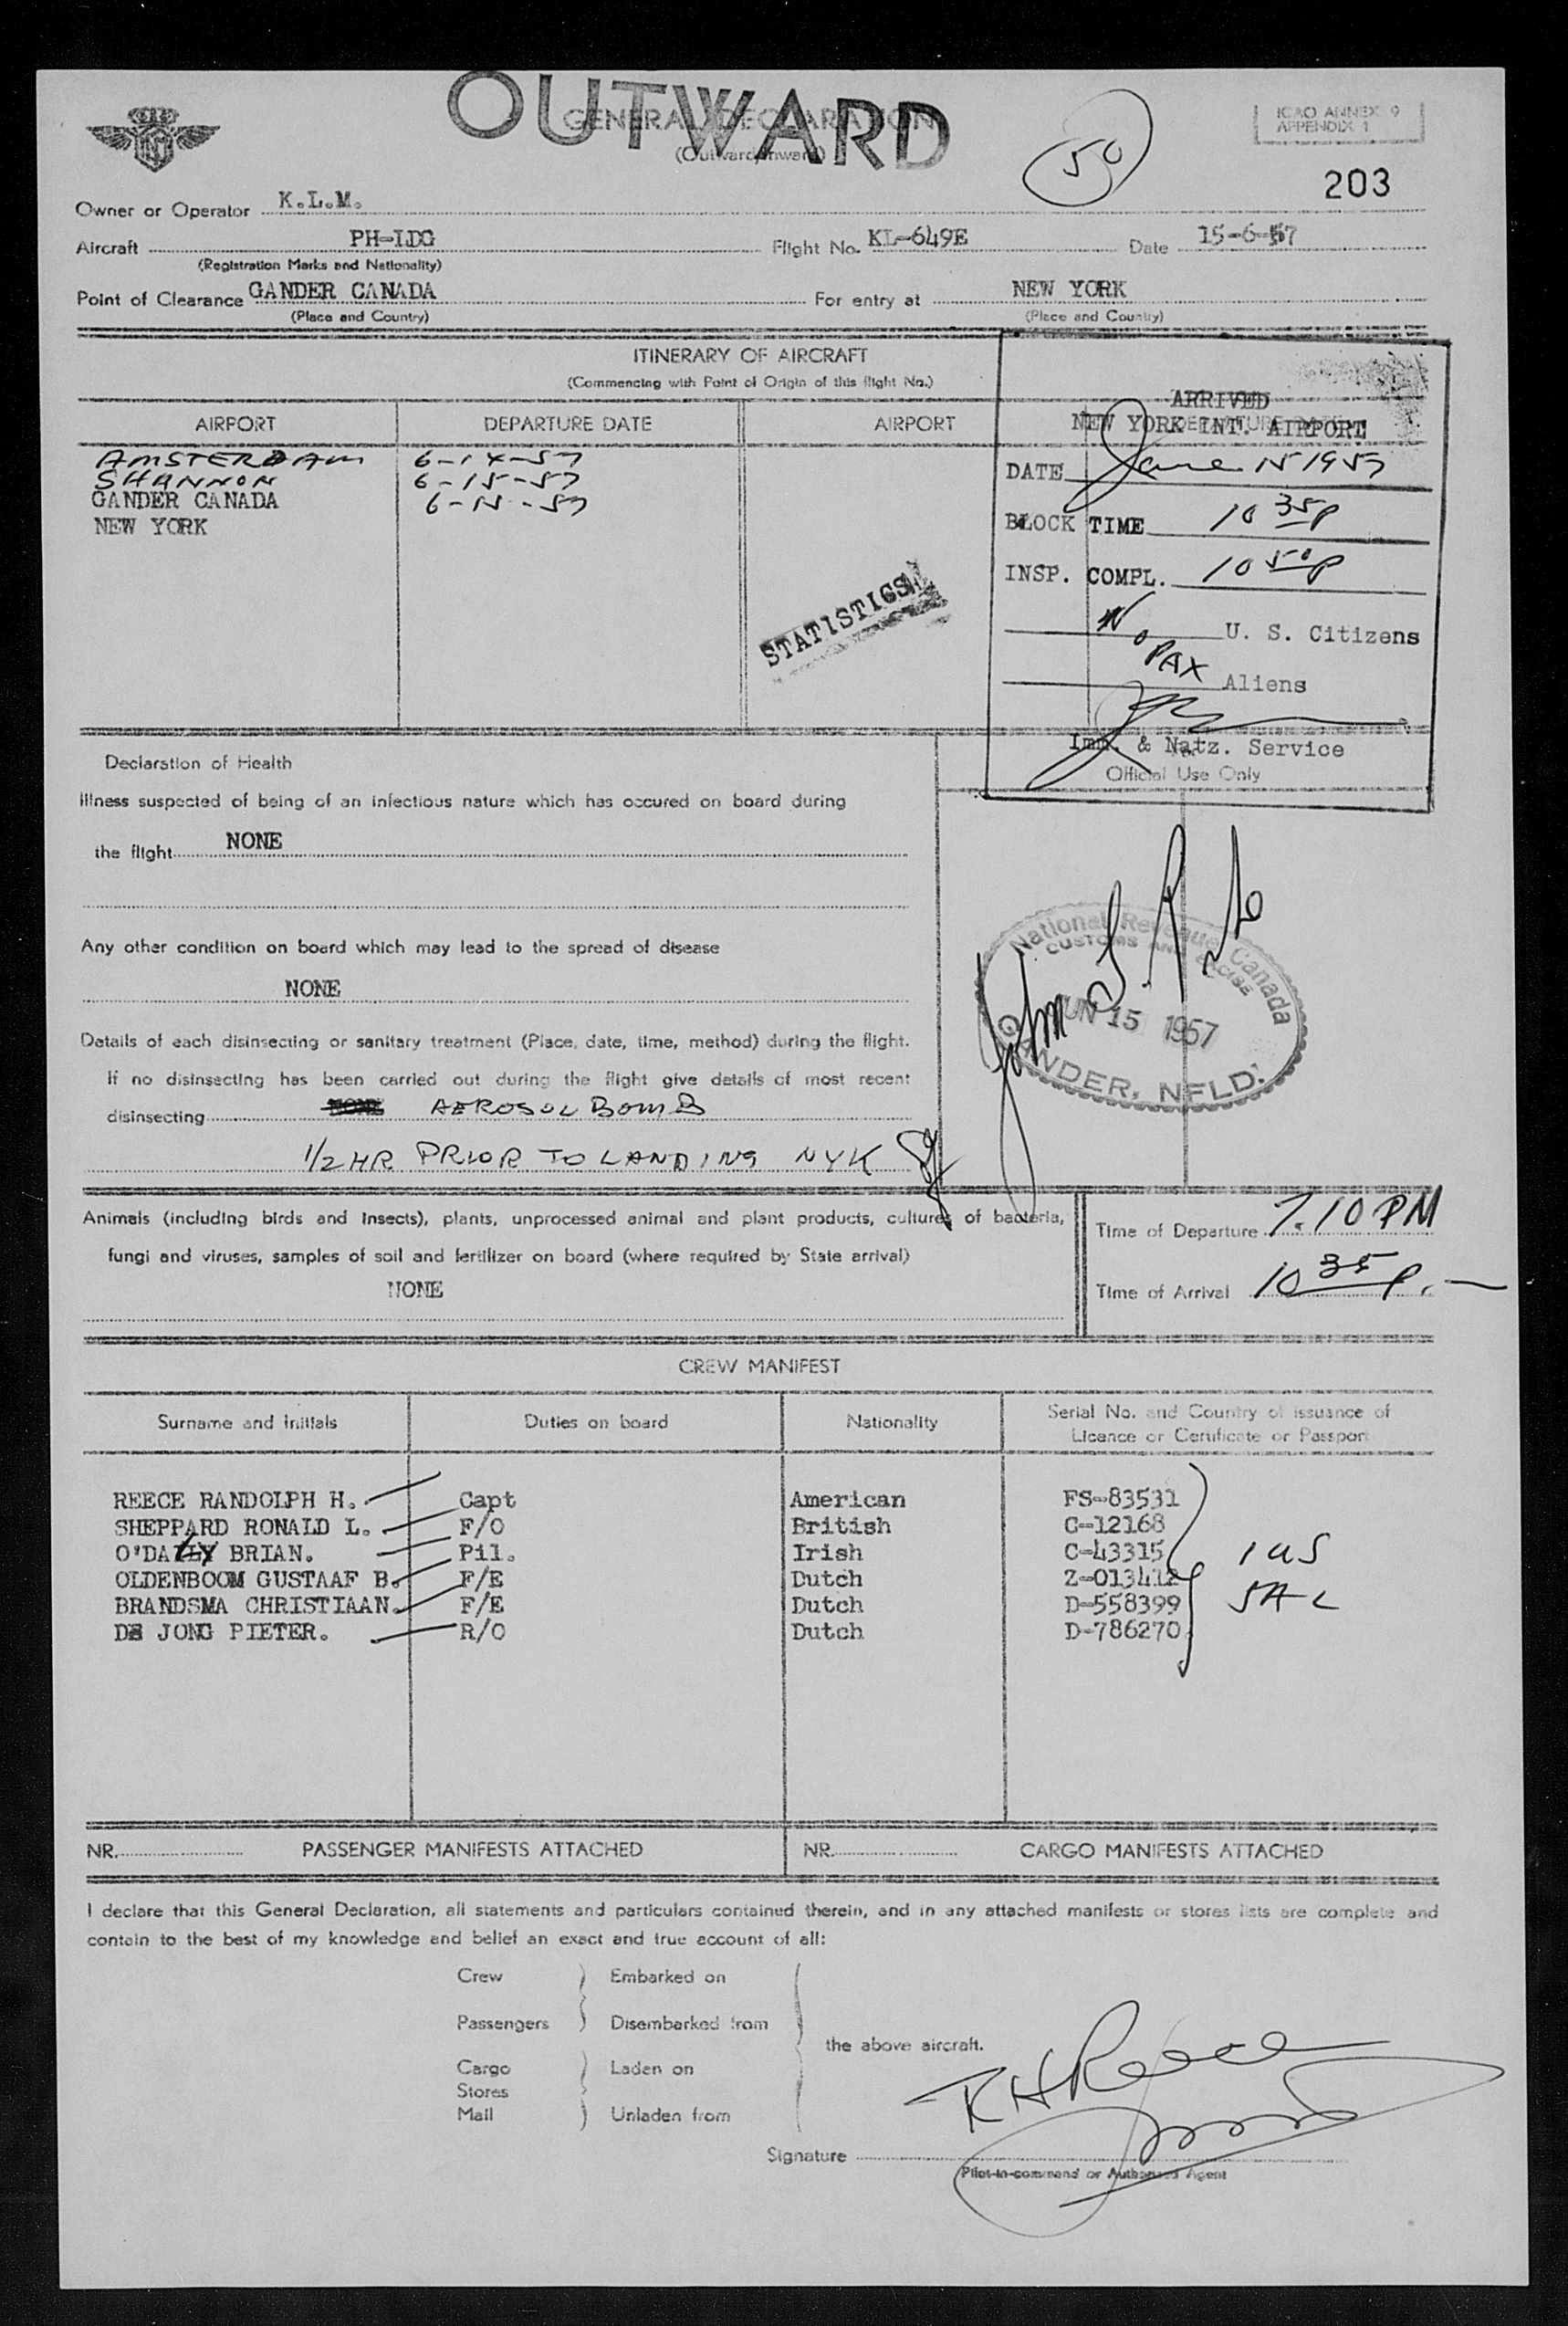 OUTWARD
GENERAL DECLARATION
(Outward/Inward)
50
ICAO ANNEX 9
APPENDIX 1
203
Owner or Operator K.L.M.
Aircraft PH-LDG Flight No. KL-649E Date 15-6-57
(Registration Marks and Nationality)
Point of Clearance GANDER CANADA For entry at NEW YORK
(Place and Country) (Place and Country)
ITINERARY OF AIRCRAFT
(Commencing with Point of Origin of this flight No.)
AIRPORT DEPARTURE DATE AIRPORT
AMSTERDAM 6-14-57
SHANNON 6-15-57
GANDER CANADA 6-15-57
NEW YORK
STATISTICS
ARRIVED
NEW YORK INT. AIRPORT
DATE June 15 1957
BLOCK TIME 10 35 P
INSP. COMPL. 10 50 P
No U. S. Citizens
PAX Aliens
Imm. & Natz. Service
Official Use Only
Declaration of Health
Illness suspected of being of an infectious nature which has occured on board during
the flight NONE
Any other condition on board which may lead to the spread of disease
NONE
National Revenue Canada
CUSTOMS AND EXCISE
JUN 15 1957
GANDER, NFLD.
Details of each disinsecting or sanitary treatment (Place, date, time, method) during the flight.
If no disinsecting has been carried out during the flight give details of most recent
disinsecting NONE AEROSOL BOMB
1/2 HR PRIOR TO LANDING NYK
Animals (including birds and insects), plants, unprocessed animal and plant products, cultures of bacteria,
fungi and viruses, samples of soil and fertilizer on board (where required by State arrival)
NONE
Time of Departure 7.10 PM
Time of Arrival 10 35 P.
CREW MANIFEST
Surname and initials Duties on board Nationality Serial No. and Country of issuance of
Licence or Certificate or Passport
REECE RANDOLPH H. Capt American FS-83531
SHEPPARD RONALD L. F/O British C-12168
O'DALY BRIAN. Pil. Irish C-43315
OLDENBOOM GUSTAAF B. F/E Dutch Z-013412
BRANDSMA CHRISTIAAN. F/E Dutch D-558399
DE JONG PIETER. R/O Dutch D-786270
1 US
5 AL
NR. PASSENGER MANIFESTS ATTACHED NR. CARGO MANIFESTS ATTACHED
I declare that this General Declaration, all statements and particulars contained therein, and in any attached manifests or stores lists are complete and
contain to the best of my knowledge and belief an exact and true account of all:
Crew ) Embarked on
Passengers ) Disembarked from
the above aircraft.
Cargo ) Laden on
Stores
Mail ) Unladen from
RH Reece
Signature
Pilot-in-command or Authorized Agent